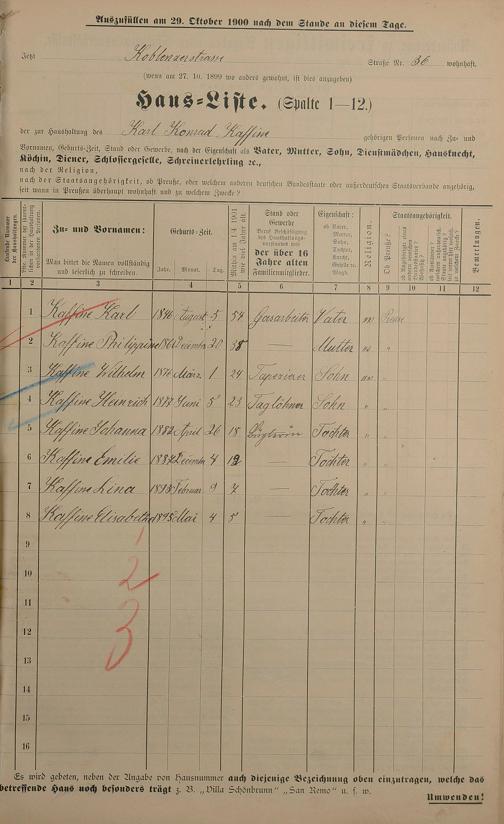 Auszufüllen am 29. Oktober 1900 nach dem Stande an diesem Tage.
Jetzt Koblenzerstrasse Straße Nr. 36 wohnhaft.
(wenn am 27. 10. 1899 wo anders gewohnt, ist dies anzugeben)
Haus-Liste. (Spalte 1—12.)
der zur Haushaltung des Karl Konrad Kaffine gehörigen Personen nach Zu- und
Vornamen, Geburts-Zeit, Stand oder Gewerbe, nach der Eigenschaft als Vater, Mutter, Sohn, Dienstmädchen, Hausknecht,
Köchin, Diener, Schlossergeselle, Schreinerlehrling ꝛc.,
nach der Religion,
nach der Staatsangehörigkeit, ob Preuße, oder welchem anderen deutschen Bundesstaate oder außerdeutschen Staatsverbande angehörig,
seit wann in Preußen überhaupt wohnhaft und zu welchem Zwecke?
Zu- und Vornamen:
Man bittet die Namen vollständig
und leserlich zu schreiben.
Geburts-Zeit.
Jahr. Monat. Tag
Stand oder
Gewerbe
der über 16
Jahre alten
Familienmitglieder.
Eigenschaft:
ob Vater,
Mutter,
Sohn,
Tochter,
Religion.
Staatsangehörigkeit.
Ob Preuße?
Bemerkungen.
1 2 3 4 5 6 7 8 9 10 11 12
1 Kaffine Karl 1846 August 5 54 Gasarbeiter Vater
2 Kaffine Philippine Dezember 20 — Mutter "
3 Kaffine Wilhelm März 1 24 Tapezierer Sohn "
4 Kaffine Heinrich 1877 Juni 5 23 Taglöhner Sohn " "
5 Kaffine Johanna 1882 April 26 18 Tochter " "
6 Kaffine Emilie Dezember 4 12 — Tochter " "
7 Kaffine Lina 1893 Februar 9 7 — Tochter " "
8 Kaffine Elisabetha 1895 Mai 4 5 — Tochter " "
9
10
11
12
13
14
15
16
1
2
3
Es wird gebeten, neben der Angabe von Hausnummer auch diejenige Bezeichnung oben einzutragen, welche das
betreffende Haus noch besonders trägt z. B. „Villa Schönbrunn" „San Remo" u. s. w.
Umwenden!